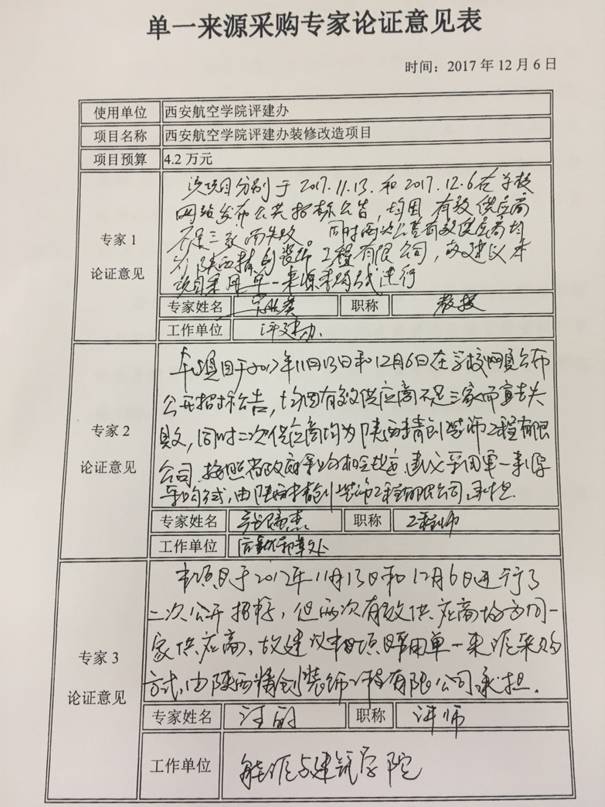 单一来源采购专家论证意见表
时间：2017 年 12 月 6 日
使用单位 西安航空学院评建办
项目名称 西安航空学院评建办装修改造项目
项目预算 4.2 万元
专家 1
论证意见
该项目分别于 2017.11.13. 和 2017.12.6 在学校
网站发布公共招标公告，均因有效供应商
不足三家而失败 同时两次公告有效供应商均
为陕西精创装饰工程有限公司，故建议本
项目采用单一来源采购方式进行
专家姓名 职称 教授
工作单位 评建办.
专家 2
论证意见
本项目于2017年11月13日和12月6日在学校网页公布
公开招标公告，均因有效供应商不足三家而宣告失
败，同时二次供应商均为陕西精创装饰工程有限
公司，按照省政府采购相关规定建议采用单一来源
采购方式，由陕西精创装饰工程有限公司承担.
专家姓名 职称 工程师
工作单位
专家 3
论证意见
本项目于2017年11月13日和12月6日进行了
二次公开招标，但两次有效供应商均为同一
家供应商，故建议本项目采用单一来源采购
方式，由陕西精创装饰工程有限公司承担.
专家姓名 职称 讲师
工作单位 能源与建筑学院